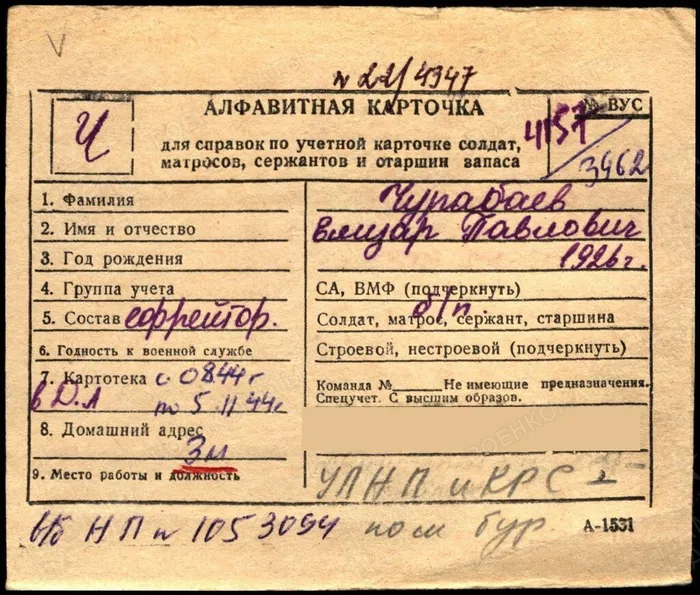 № 22/4347
АЛФАВИТНАЯ КАРТОЧКА
Ч
для справок по учетной карточке солдат,
матросов, сержантов и старшин запаса
№ ВУС
4157
3462
1. Фамилия Чурабаев
2. Имя и отчество Елизар Павлович
3. Год рождения 1926 г.
4. Группа учета СА, ВМФ (подчеркнуть)
б/п
5. Состав ефрейтор. Солдат, матрос, сержант, старшина
6. Годность к военной службе Строевой, нестроевой (подчеркнуть)
7. Картотека с 0844 г
в Д.А по 5.11.44г
Команда № Не имеющие предназначения.
Спецучет. С высшим образов.
8. Домашний адрес
Зм
9. Место работы и должность УПНП и КРС
в/б НП № 1053094 пом бур
А-1531